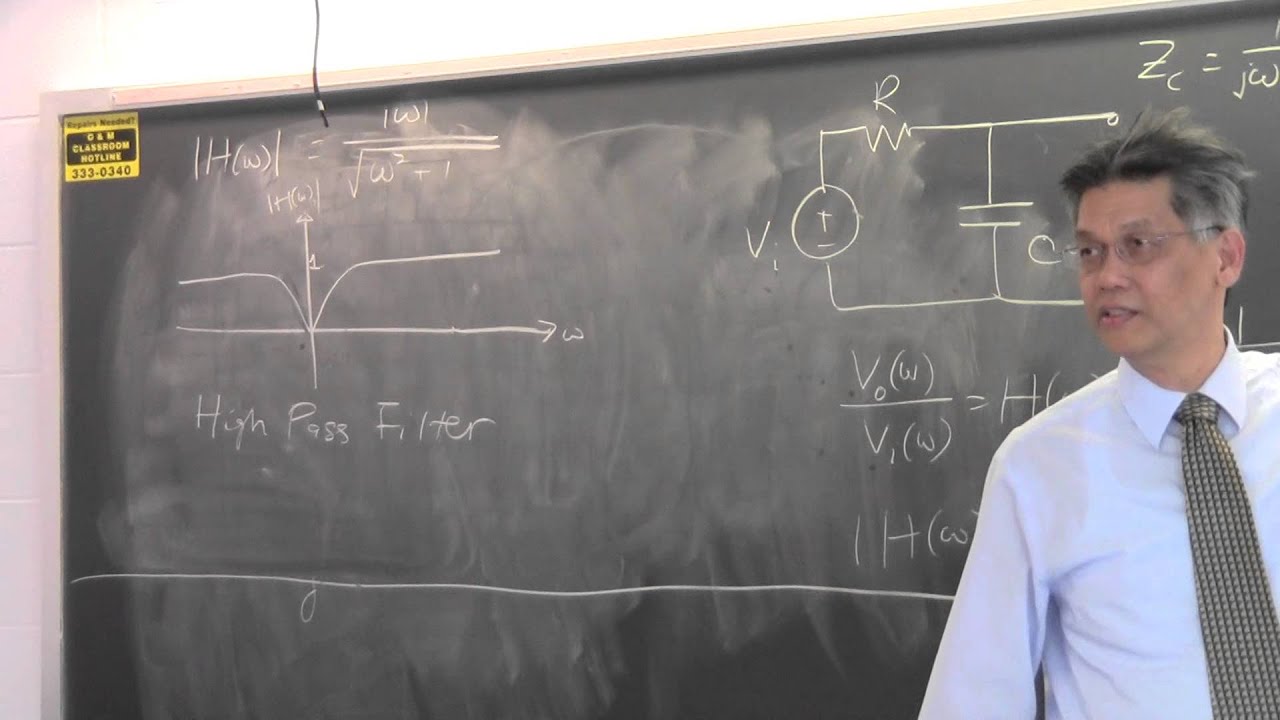 Repairs Needed?
O & M
CLASSROOM
HOTLINE
333-0340
|H(ω)| = |ω| / √ω² + 1
|H(ω)|
1
ω
High Pass Filter
R
V_i
+
−
C
Z_c = 1 / jω
V_o(ω) / V_i(ω) = H(
|H(ω)